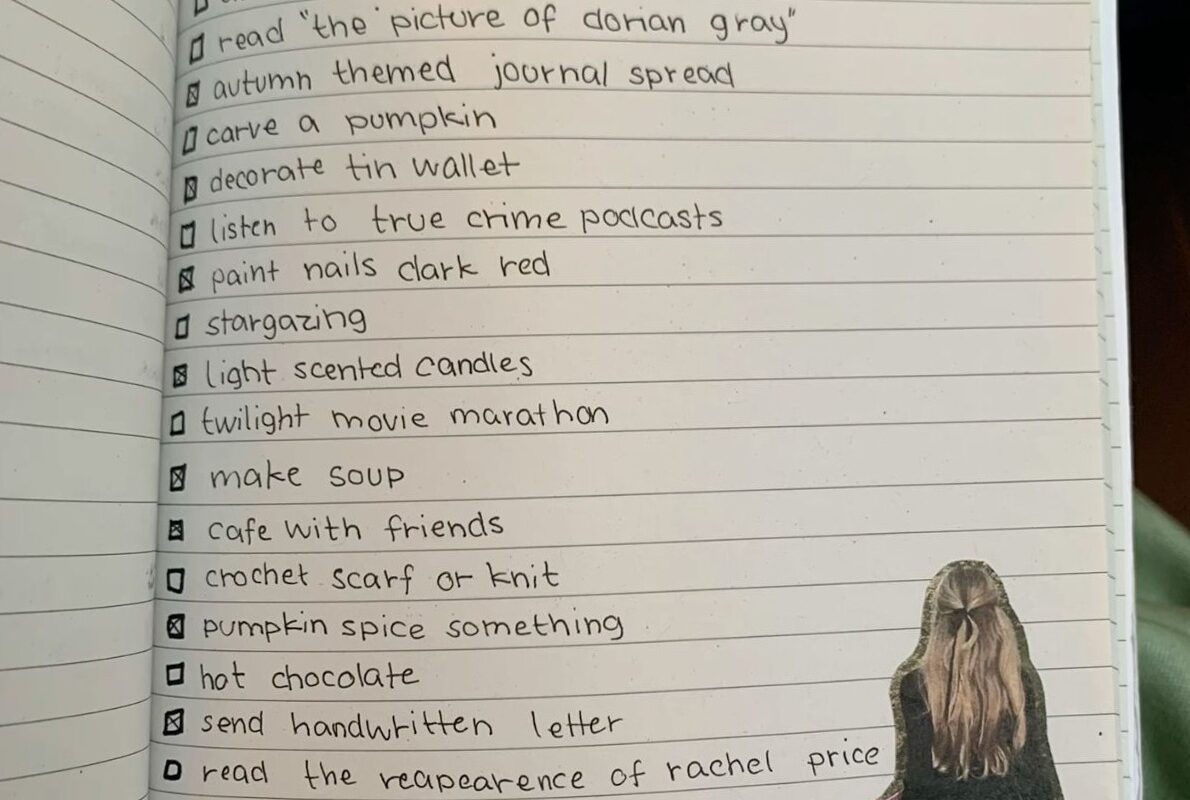 ☐ read "the picture of dorian gray"
☒ autumn themed journal spread
☐ carve a pumpkin
☒ decorate tin wallet
☐ listen to true crime podcasts
☒ paint nails dark red
☐ stargazing
☒ light scented candles
☐ twilight movie marathon
☒ make soup
☒ cafe with friends
☐ crochet scarf or knit
☒ pumpkin spice something
☐ hot chocolate
☒ send handwritten letter
☐ read the reapearence of rachel price